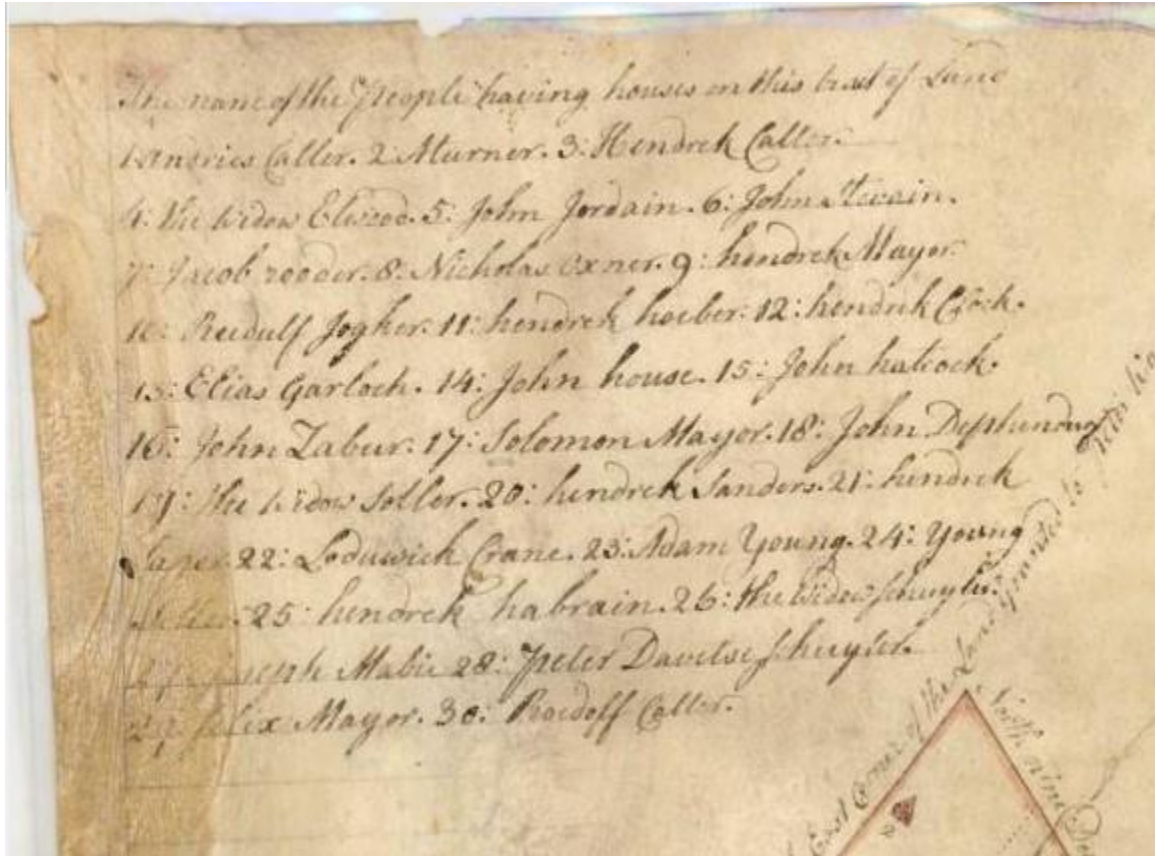 The name of the People having houses on this tract of Land
1: Andries Caller. 2: Murner. 3: Hendrek Caller.
4: the Widow Elwood. 5: John Jordain. 6: John
7: Jacob rooder. 8: Nicholas oxner. 9: hendrek Mayor.
10: Jogher. 11: hendrek hoeber. 12: hendrek Clock.
13: Elias Garloch. 14: John house. 15: John hatcock.
16: John Zabur. 17: Solomon Mayor. 18: John
19: the Widow Soller. 20: hendrek Sanders. 21: hendrek
22: Loduwick Crane. 23: Adam Young. 24: Young
25: hendrek habrain. 26: the Widow Schuyler.
27: Joseph Mabie 28: Peter Davetse Schuyler.
29: felix Mayor. 30: Roedoff Caller.
East Corner of the Land granted to
North nine De